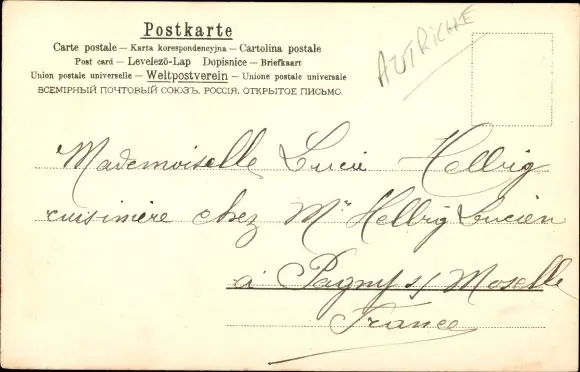 Postkarte
Carte postale — Karta korespondencyjna — Cartolina postale
Post card — Levelező-Lap Dopisnice — Briefkaart
Union postale universelle — Weltpostverein — Unione postale universale
ВСЕМІРНЫЙ ПОЧТОВЫЙ СОЮЗЪ. РОССІЯ. ОТКРЫТОЕ ПИСЬМО.
AUTRICHE
Mademoiselle Lucie Helbig
cuisinière chez Mr Helbig Lucien
à Pagny s/ Moselle
France